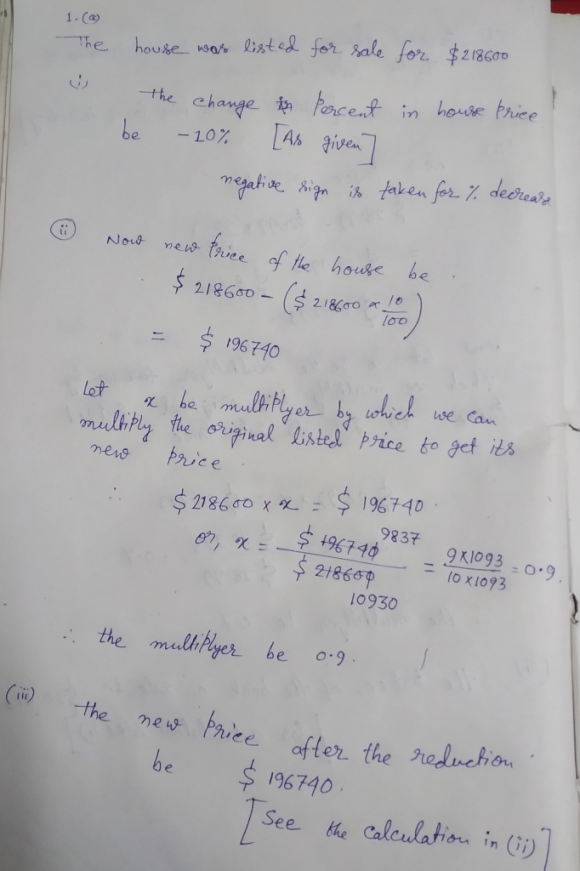 1. (a)
The house was listed for sale for $218600
(i) The change in Percent in house Price
be -10% [As given]
negative sign is taken for % decrease
(ii) Now new Price of the house be .
$ 218600 - ($ 218600 × 10/100)
= $ 196740
Let x be multiplyer by which we can
multiply the original listed price to get its
new price .
∴ $218600 × x = $ 196740 .
or, x = $ 196740 9837 / $ 218600 10930 = 9×1093 / 10×1093 = 0.9.
∴ the multiplyer be 0.9.
(iii) The new Price after the reduction
be $ 196740.
[See the calculation in (ii)]